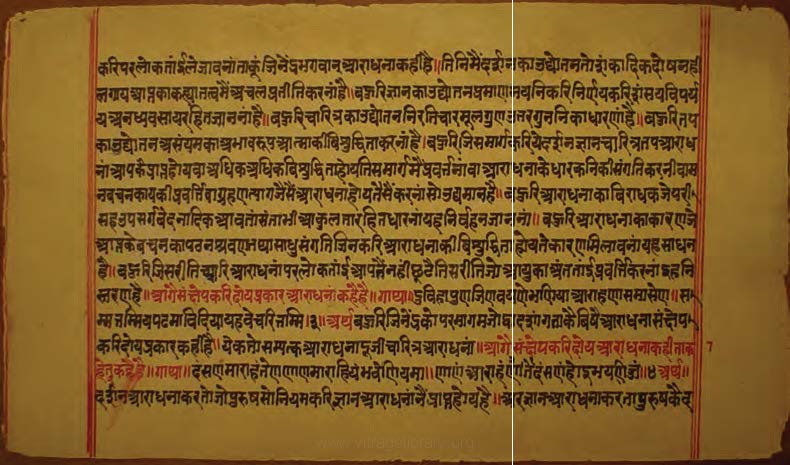 करि परलोकतांई लेजावनां ताकूं जिनेंद्र भगवान आराधना कही है॥ तिनिमैं दर्शनका उद्योतन तो शंकादिक दोष नही
लगाय आप्तका कह्या तत्वमैं अचल प्रतीति करनां है॥ बहुरि ज्ञानका उद्योतन प्रमाण नयनिकरि निर्णयकरि संसय विपर्य
य अनध्यवसाय रहित जाननां है॥ बहुरि चारित्रका उद्योतन निरतिचार मूलगुण उत्तरगुननिका धारणां है॥ बहुरि तप
का उद्योतन असंयमका अभावरूप आत्माकी विशुद्धिता करनां है॥ बहुरि जिस मार्ग करि ये दर्शन ज्ञान चारित्र तप आराध
नां आपकै प्राप्त होय वा अधिक अधिक विशुद्धिता होय तिस मार्गमैं प्रवर्त्तनां वा आराधनाके धारकनिकी संगति करनी वा म
न बचन कायकी प्रवृत्ति वा ग्रहण त्याग जैसैं आराधना होय तैसैं करनां सो उद्यमान है॥ बहुरि आराधनाका बिराधक जे परी
सह उपसर्ग बेदनादिक आवतां संता भी आकुलता रहित धारनां यह निर्वहन जाननां॥ बहुरि आराधनाका कारण जे
आप्तके बचनका पठन श्रवण तथा साधु संगति जिनकरि आराधनाकी बिशुद्धिता होय ते कारण मिलावनां यह साधन
है॥ बहुरि जिस रीति च्यारि आराधनां परलोकतांई आपतैं नही छूटै तिस रीति जो आयुका अंततांई प्रवृत्ति करना यह नि
स्तरण है॥ आगैं संक्षेपकरि दोय प्रकार आराधनां कहै है॥ गाथा॥ दुविहा पुण जिणवयणे भणिया आराहणा समासेण॥ स
म्मत्तम्मि य पढमा विदिया य हवे चरित्तम्मि।३॥ अर्थ बहुरि जिनेंद्रको परमागम जो द्वादशांग ताकै विषै आराधनां संक्षेप
करि दोय प्रकार कही है॥ येक तो सम्यक्त आराधना दूजी चारित्र आराधनां॥ आगैं संक्षेप करि दोय आराधना कही ताका ७
हेतु कहै है॥ गाथा॥ दंसणमाराहंतेण णाणमाराहियं भवे णियमा॥ णाणं आराहंतेण दंसणं होइ भयणिज्जं॥४ अर्थ॥
दर्शन आराधना करतो जो पुरुष सो नियमकरि ज्ञान आराधनांनैं प्राप्त होय है॥ अर ज्ञान आराधना करता पुरुषकै द
www.vitragelibrary.org